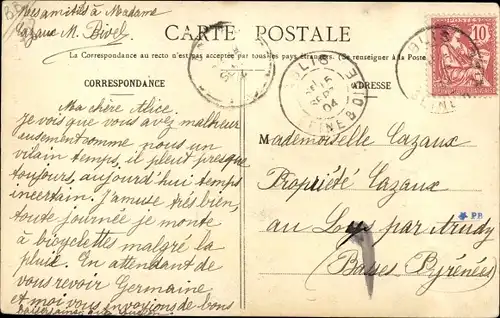 mes amitiés à Madame
Cazaux M. Bivel
CARTE POSTALE
La Correspondance au recto n'est pas acceptée par tous les pays étrangers. (Se renseigner à la Poste)
CORRESPONDANCE
ADRESSE
POSTES
10
SEINE & OISE
04
Ma chère Alice.
Je vois que vous avez malheur
eusement comme nous un
vilain temps, il pleut presque
toujours, aujourd'hui temps
incertain. J'amuse très bien,
toute journée je monte
à bicyclettes malgré la
pluie. En attendant de
vous revoir Germaine
et moi vous envoyions de bons
Mademoiselle Cazaux
Propriété Cazaux
au Loys par Arudy
(Basses Pyrénées)
PB